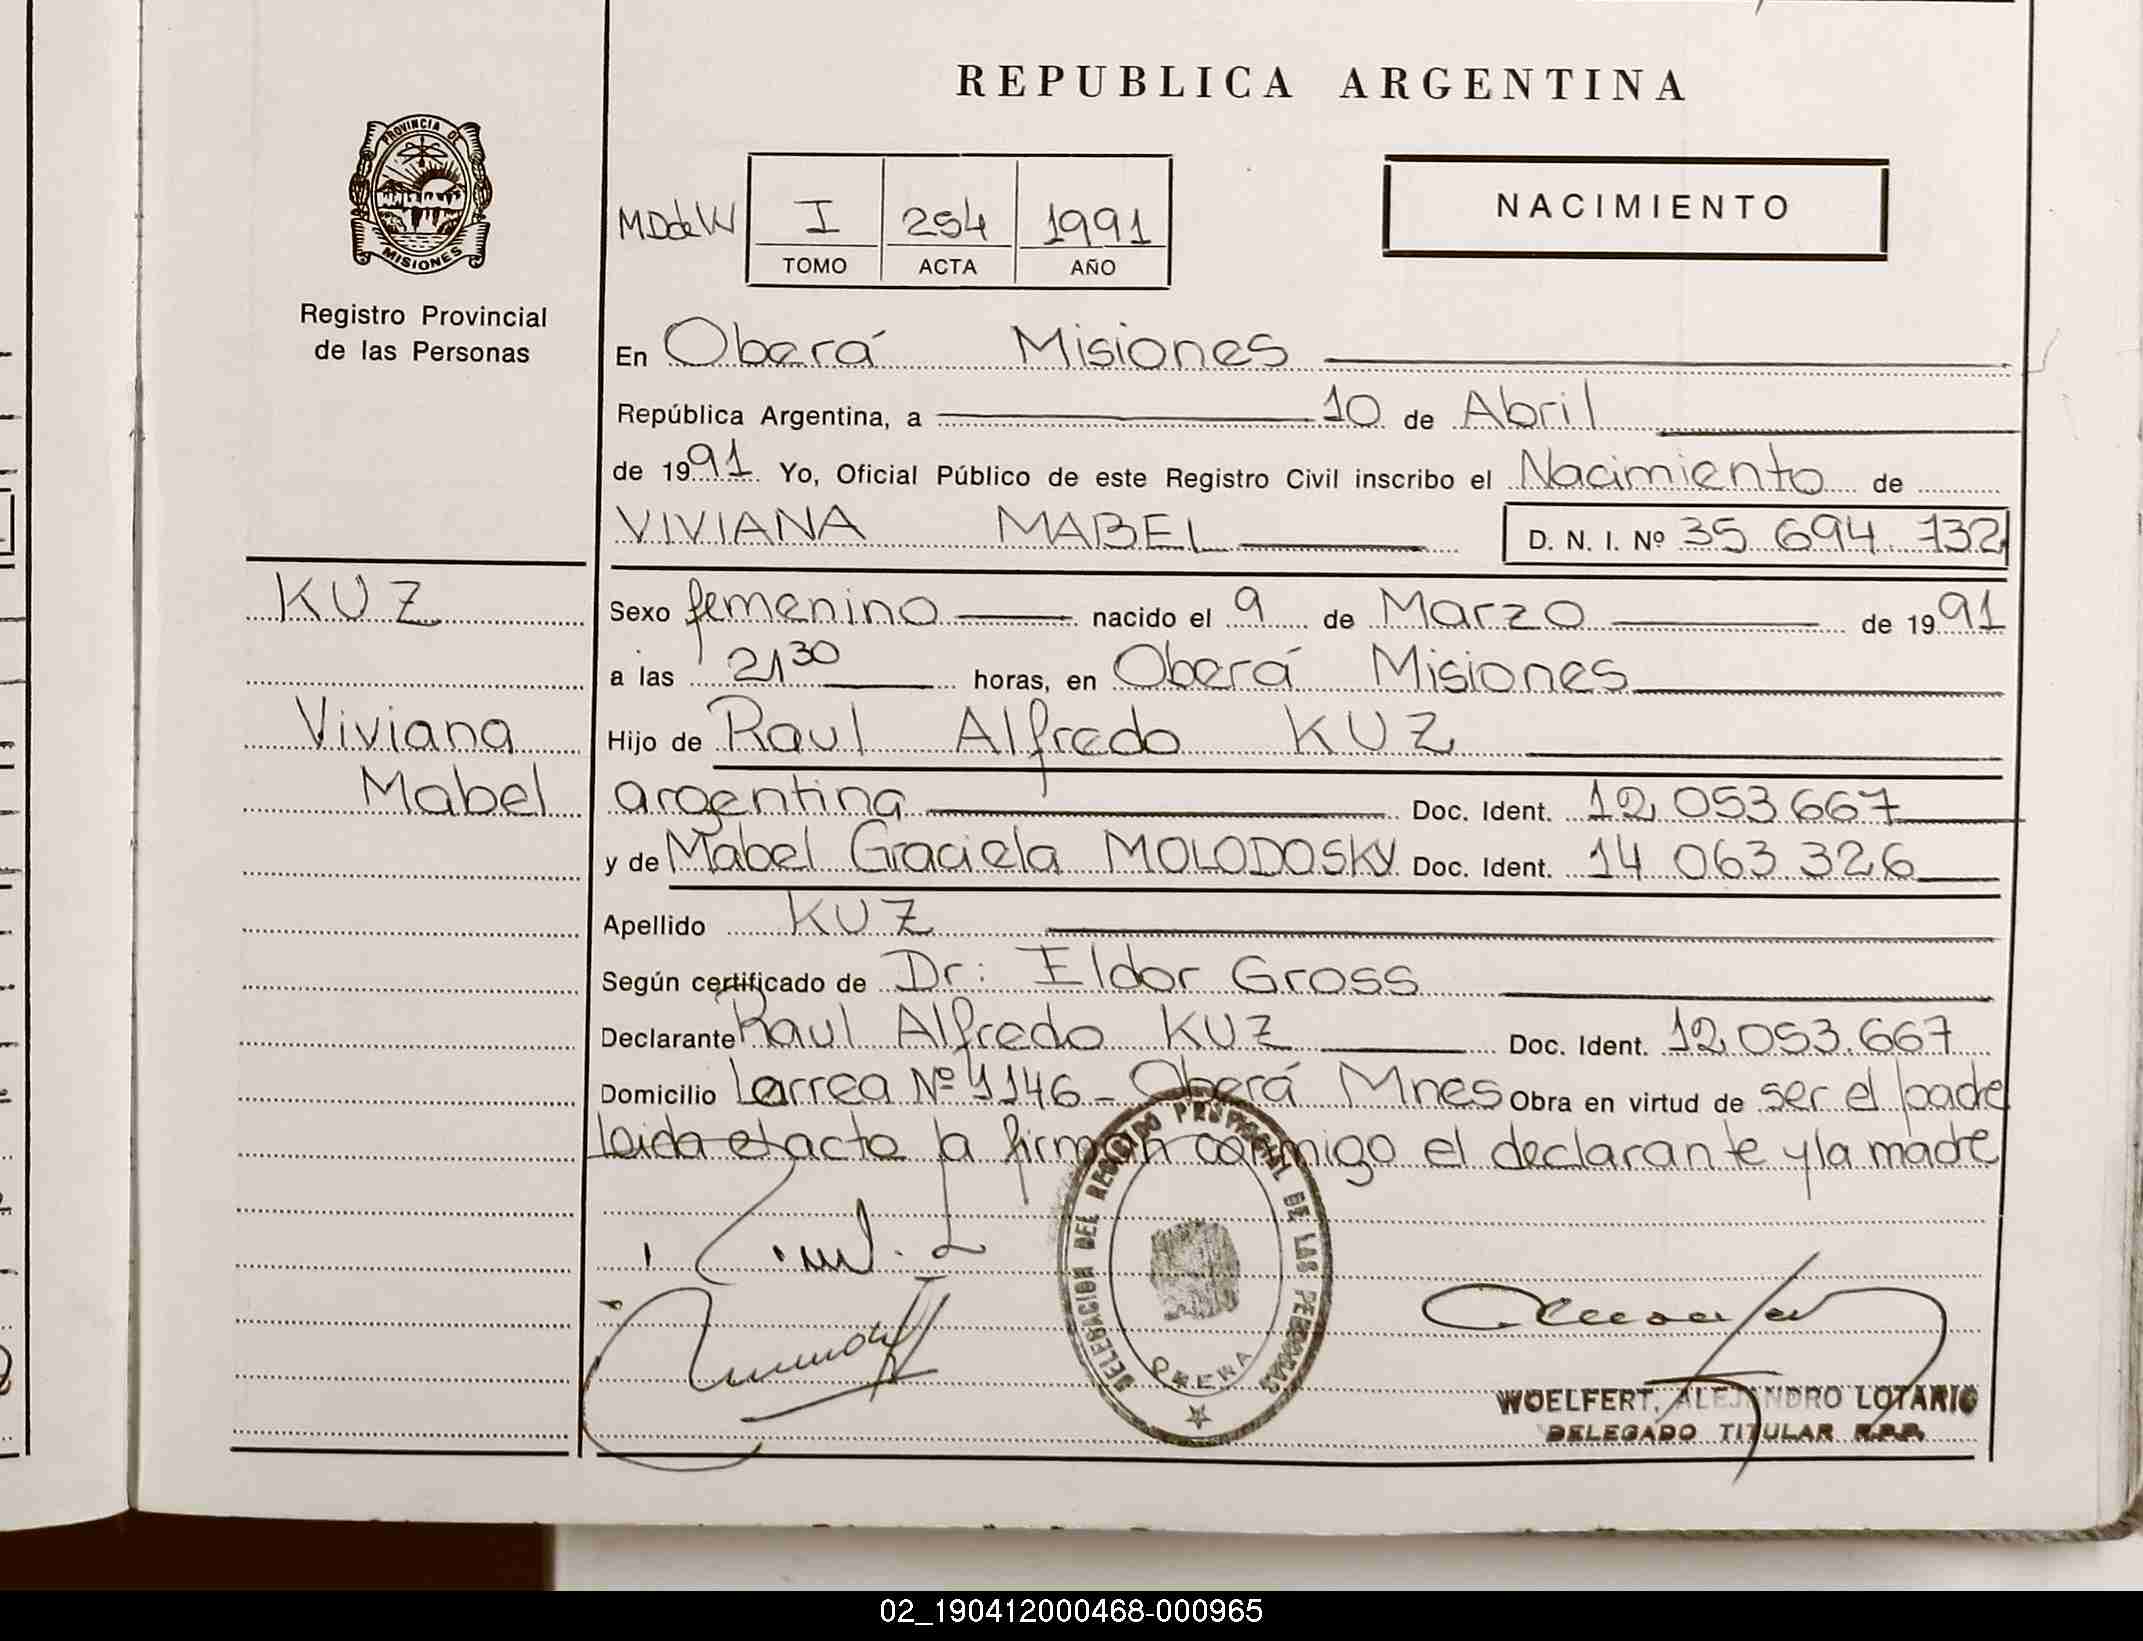 REPUBLICA ARGENTINA
PROVINCIA DE
MISIONES
Registro Provincial
de las Personas
MDdeW
I 254 1991
TOMO ACTA AÑO
NACIMIENTO
En Oberá Misiones
República Argentina, a 10 de Abril
de 1991 Yo, Oficial Público de este Registro Civil inscribo el Nacimiento de
VIVIANA MABEL D. N. I. Nº 35 694 732
KUZ
Sexo femenino nacido el 9 de Marzo de 1991
a las 21 30 horas, en Oberá Misiones
Viviana
Hijo de Raul Alfredo KUZ
Mabel
argentina Doc. Ident. 12 053 667
y de Mabel Graciela MOLODOSKY Doc. Ident. 14 063 326
Apellido KUZ
Según certificado de Dr: Eldor Gross
Declarante Raul Alfredo KUZ Doc. Ident. 12.053.667
Domicilio Larrea Nº 1146 - Oberá Mnes Obra en virtud de ser el padre
leida el acta la firman conmigo el declarante y la madre
DELEGACION DEL REGISTRO PROVINCIAL DE LAS PERSONAS
OBERA
WOELFERT, ALEJANDRO LOTARIO
DELEGADO TITULAR R.P.P.
02_190412000468-000965